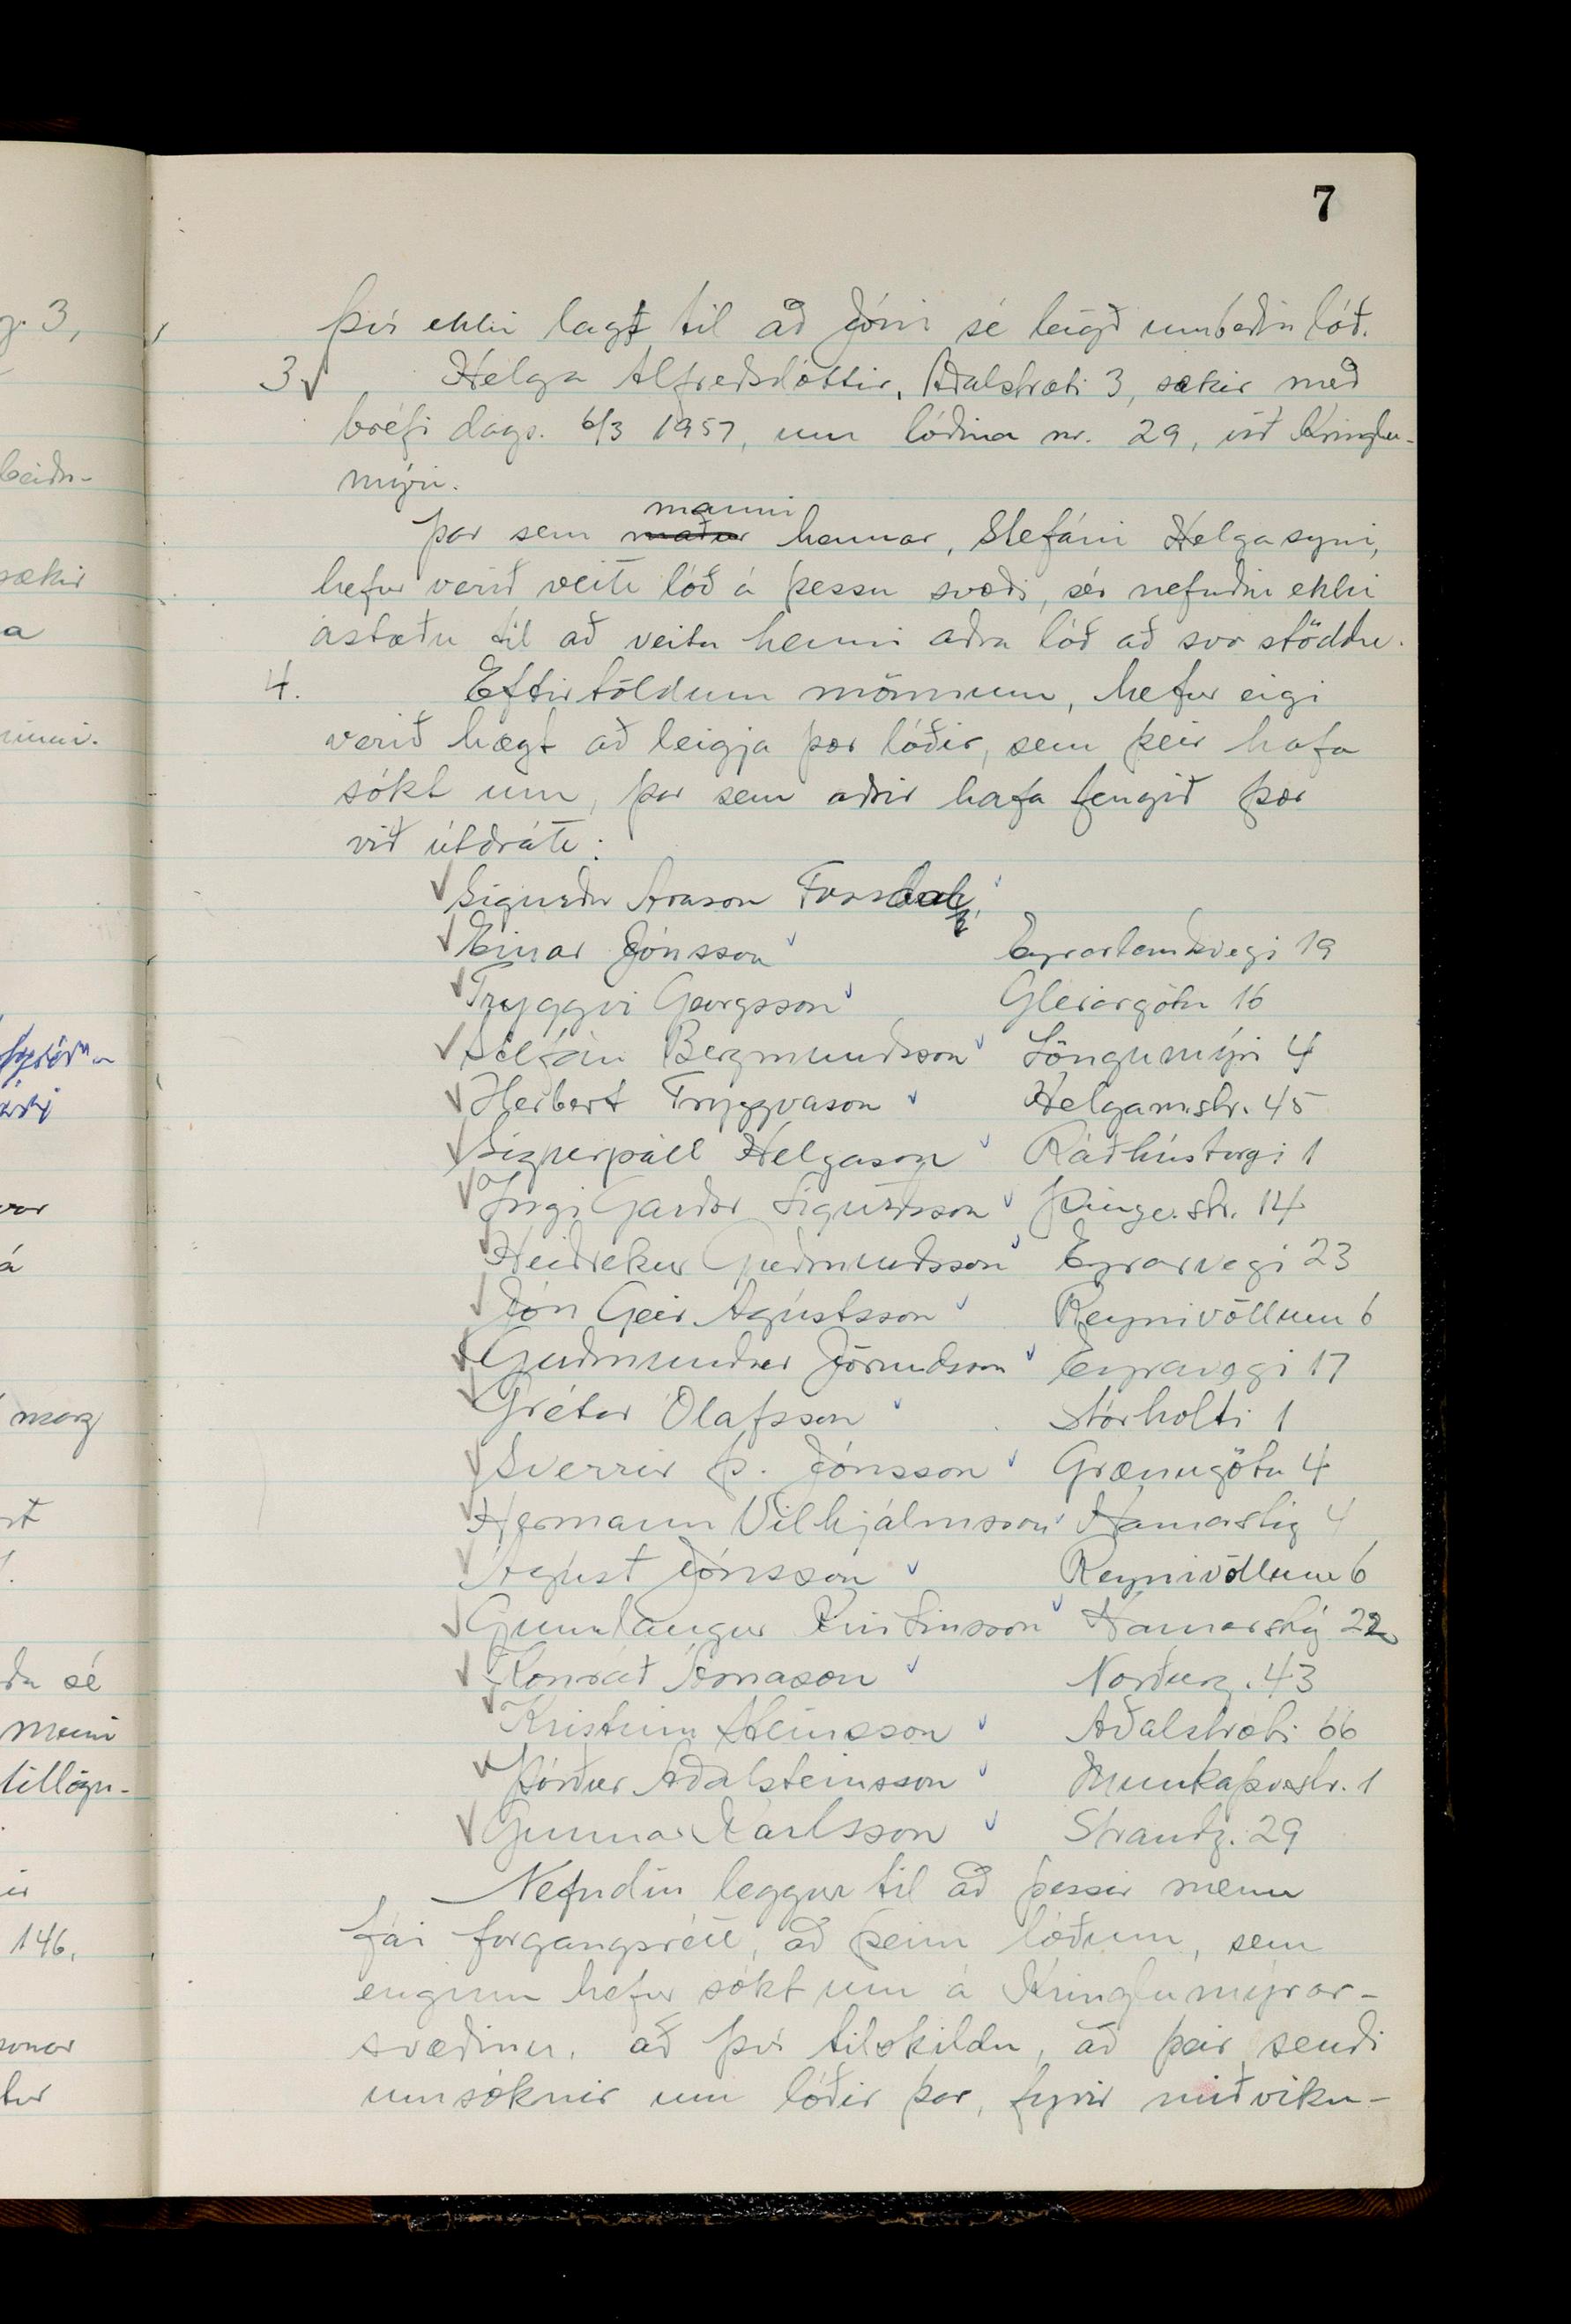 7
því ekki lagt til að Jóni sé leigð umbeðin lóð.
3 Helga Alfreðsdóttir, Aðalstræti 3, sækir með
bréfi dags. 6/3 1957, um lóðina nr. 29, við Kringlu-
mýri.
manni
Þar sem maður hennar, Stefáni Helgasyni,
hefur verið veitt lóð á þessu svæði, sér nefndin ekki
ástæðu til að veita henni aðra lóð að svo stöddu.
4. Eftirtöldum mönnum, hefur eigi
verið hægt að leigja þær lóðir, sem þeir hafa
sókt um, þar sem aðrir hafa fengið þær
við útdrátt:
Sigurður Arason
Einar Jónsson Eyrarlandsvegi 19
Tryggvi Georgsson Glerárgötu 16
Stefán Bergmundsson Löngumýri 4
Herbert Tryggvason Helgam.str. 45
Sigurpáll Helgason Ráðhústorgi 1
Ingi Garðar Sigurðsson Þingv.str. 14
Heiðrekur Guðmundsson Eyrarvegi 23
Jón Geir Ágústsson Reynivöllum 6
Guðmundur Jörundsson Eyravegi 17
Grétar Ólafsson Stórholti 1
Sverrir Þ. Jónsson Grænugötu 4
Hermann Vilhjálmsson Hamarstíg 4
Ágúst Jónsson Reynivöllum 6
Gunnlaugur Kristinsson Hamarstíg 22
Konráð Árnason Norðurg. 43
Kristinn Steinsson Aðalstræti 66
Þórður Aðalsteinsson Munkaþv.str. 1
Gunnar Karlsson Strandg. 29
Nefndin leggur til að þessir menn
fái forgangsrétt, að þeim lóðum, sem
enginn hefur sókt um á Kringlumýrar-
svæðinu, að því tilskildu, að þeir sendi
umsóknir um lóðir þar, fyrir miðviku-